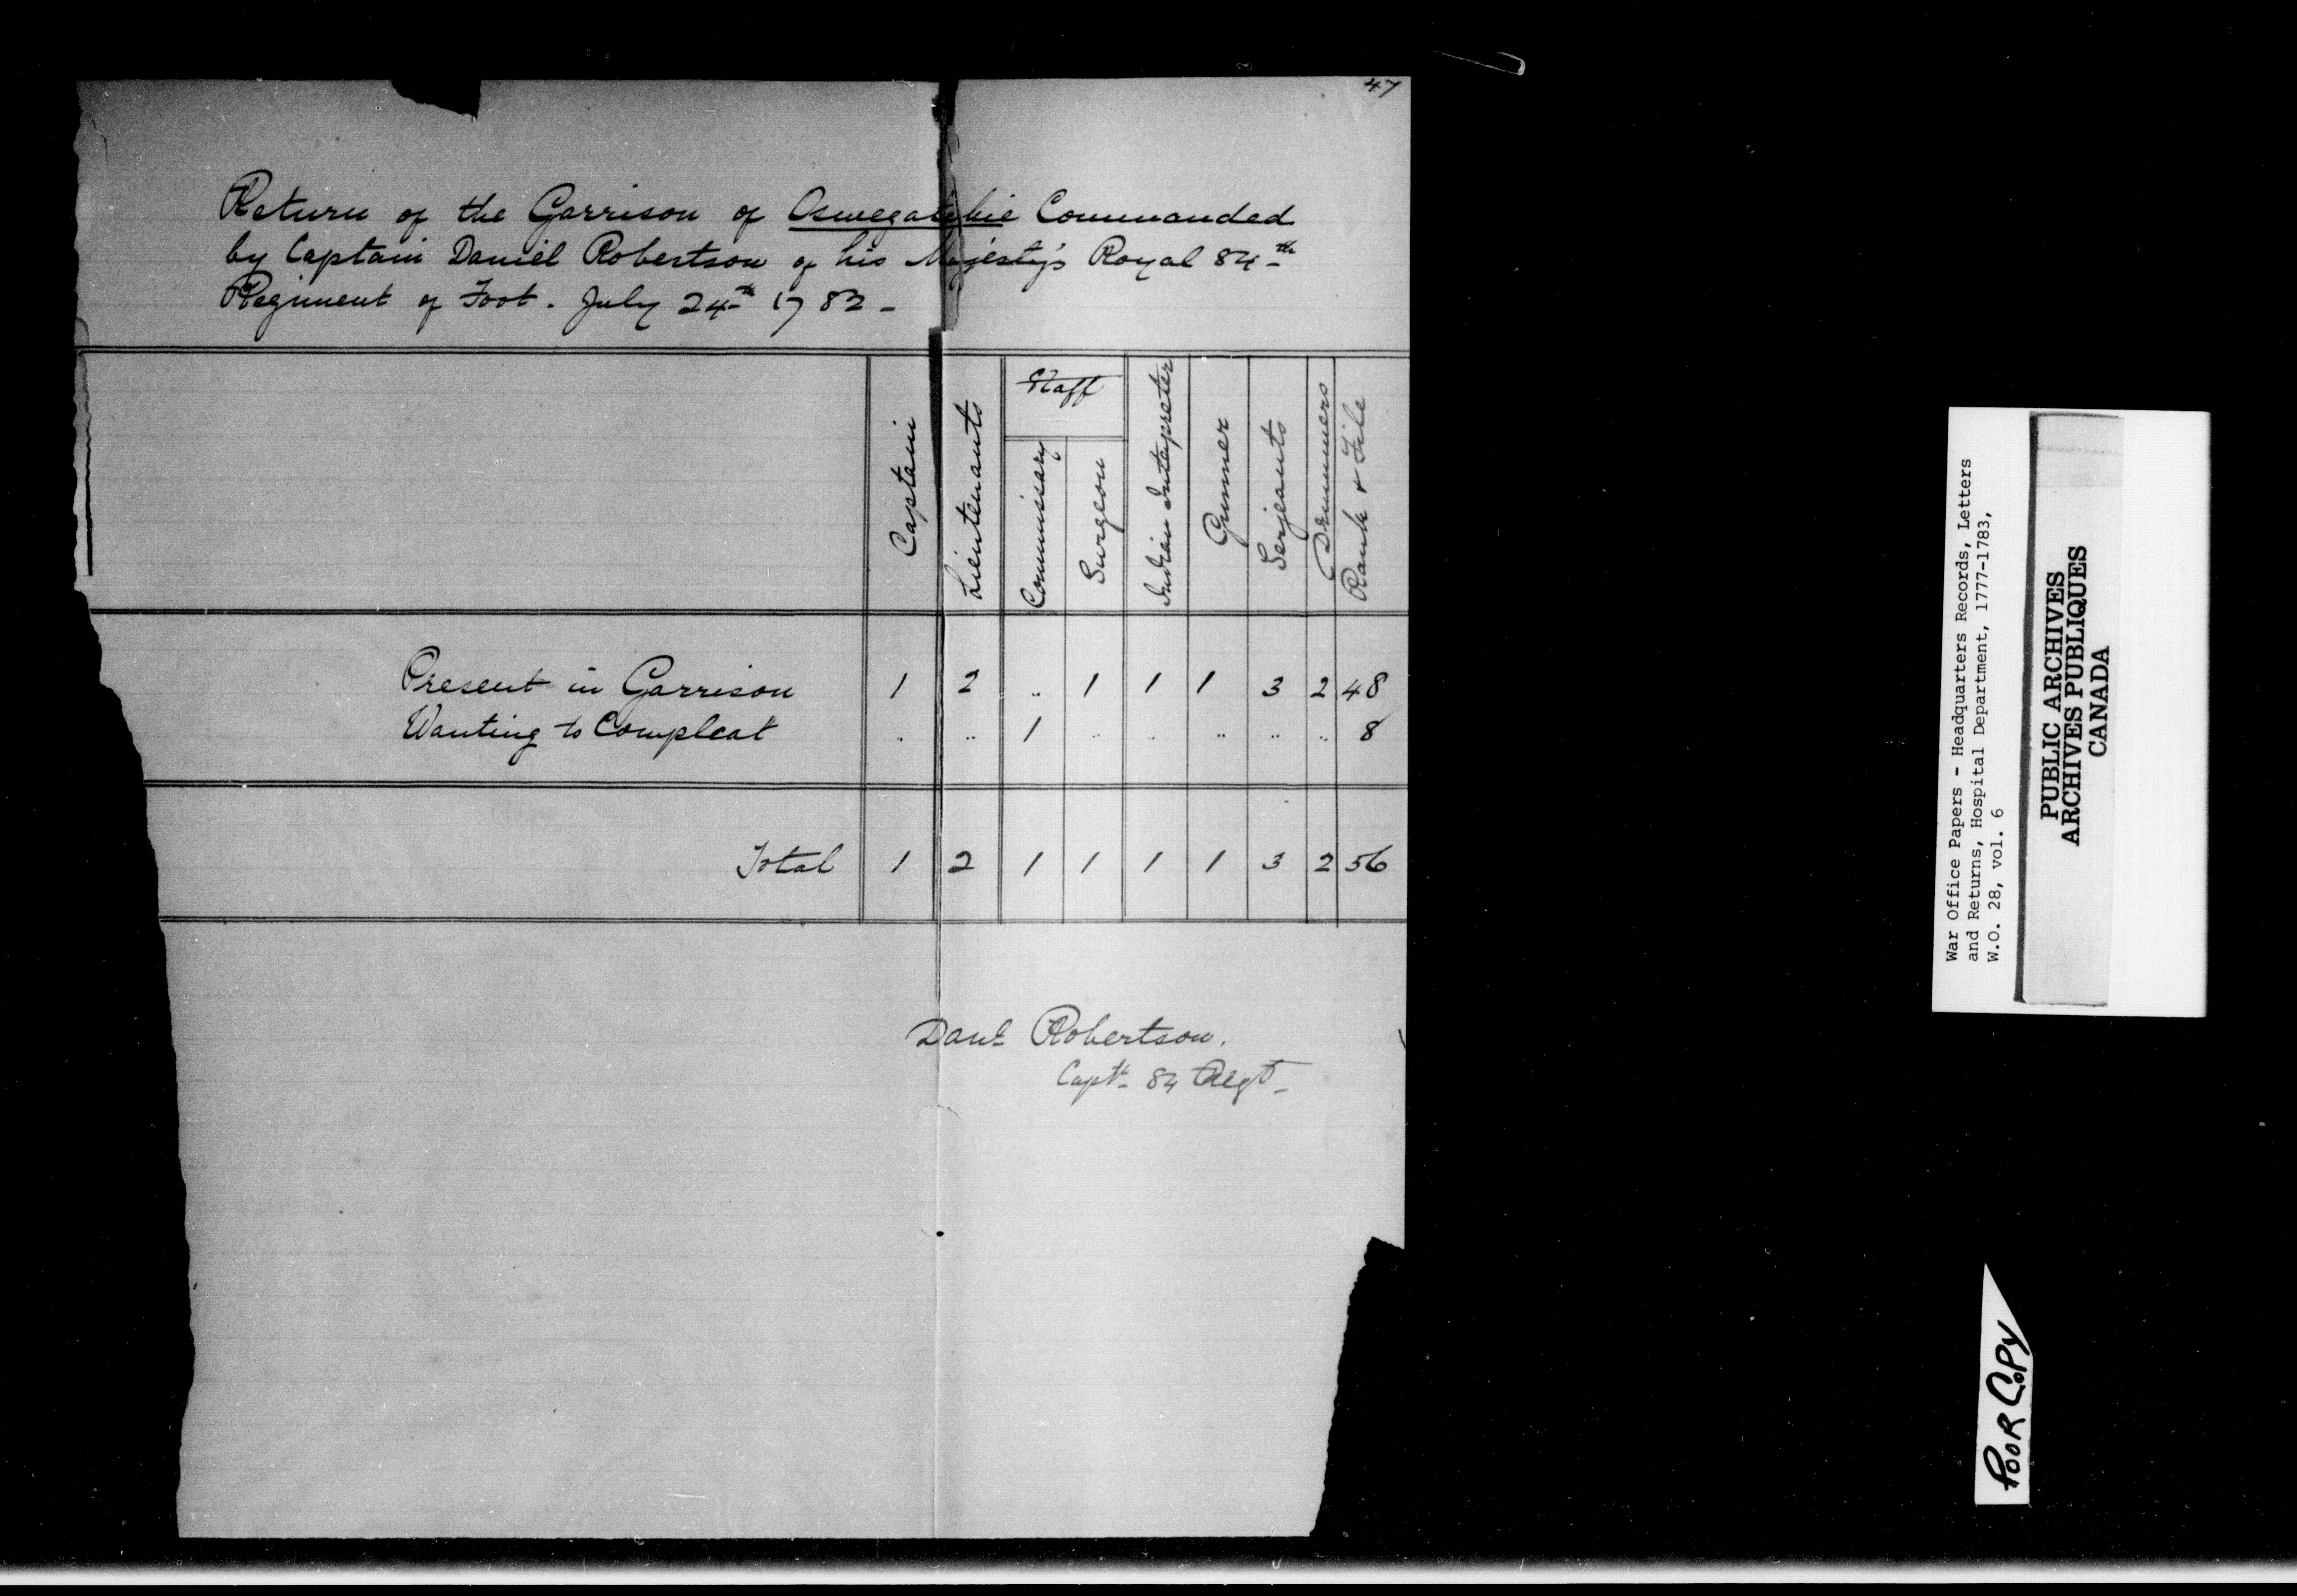 47
Return of the Garrison of Oswegatchie Commanded
by Captain Daniel Robertson of his Majesty's Royal 84th
Regiment of Foot. July 24th 1782 -
Captain
Lieutenants
Staff
Commissary
Surgeon
Indian Interpreter
Gunner
Serjeants
Drummers
Rank & File
Present in Garrison 1 2 .. 1 1 1 3 2 48
Wanting to Compleat .. .. 1 .. .. .. .. .. 8
Total 1 2 1 1 1 1 3 2 56
Danl Robertson.
Captn 84 Regt
War Office Papers - Headquarters Records, Letters
and Returns, Hospital Department, 1777-1783,
W.O. 28, vol. 6
PUBLIC ARCHIVES
ARCHIVES PUBLIQUES
CANADA
POOR COPY